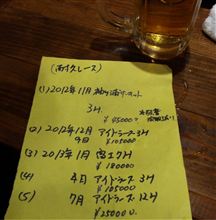 (耐久レース)
(1) 2012年11月
3H
¥45000-
(2) 2012年12月 アイドラーズ 3H
今回 ¥105000
(3) 2013年1月 富士7H
¥180000
(4) 4月 アイドラーズ 3H
¥105000
(5) 7月 アイドラーズ 12H
¥250000.